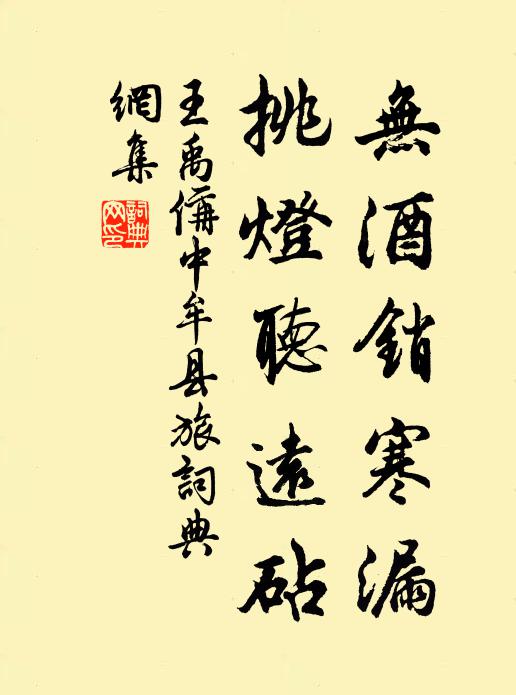 無酒銷寒漏
挑燈聽遠砧
王禹偁中牟县旅詞典
網集
詞典
网印